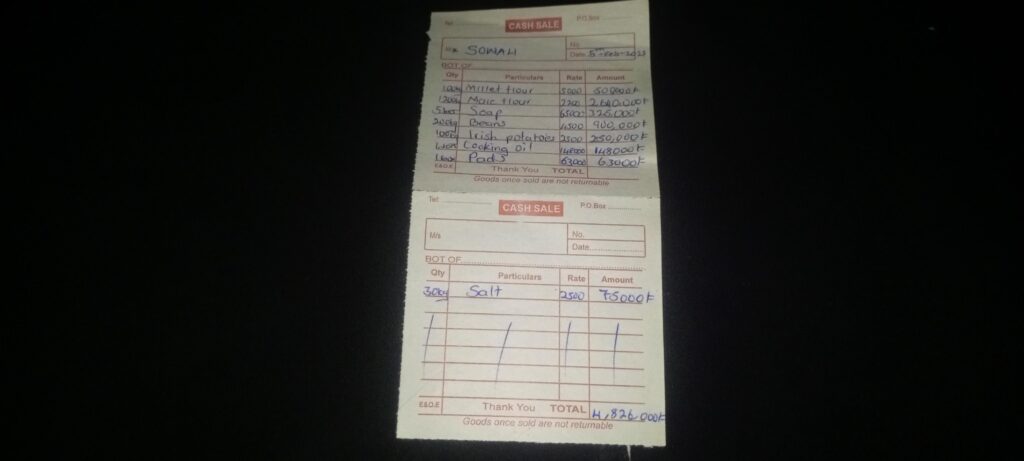 Tel P.O.Box
CASH SALE
M/s SOWALI No.
Date 5th-Feb-2023
BOT OF
Qty Particulars Rate Amount
100kg Millet flour 5000 500000/=
1200kg Maic flour 2200 2,640,000/=
5 box Soap 65000 325,000/=
200kg Beans 4500 900,000/=
100kg Irish potatoes 2500 250,000/=
Cooking oil 148000 148000/=
1 box Pads 63000 63000/=
E&O.E Thank You TOTAL
Goods once sold are not returnable
Tel: P.O.Box
CASH SALE
M/s No.
Date
BOT OF
Qty Particulars Rate Amount
30kg Salt 2500 75000/=
E&O.E Thank You TOTAL 4,826,000/=
Goods once sold are not returnable